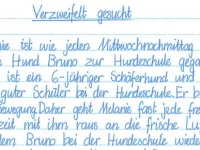 Verzweifelt gesucht
ie ist wie jeden Mittwochnachmittag
n Hund Bruno zur Hundeschule gega
ist ein 6-jähriger Schäferhund und
guter Schüler bei der Hundeschule. Er b
ewegung. Daher geht Melanie fast jede fre
zeit mit ihm raus an die frische Lu
dem Bruno bei der Hundeschule wiede